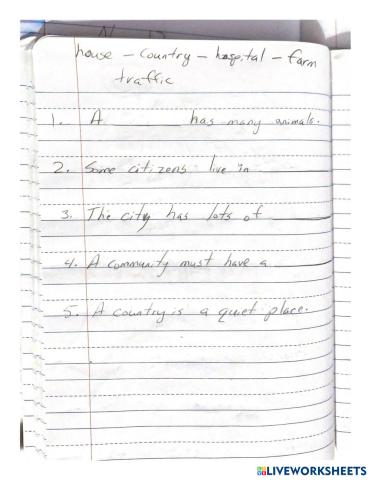 house - country - hospital - farm
traffic
1. A ________ has many animals.
2. Some citizens live in ________
3. The city has lots of ________
4. A community must have a ________
5. A country is a quiet place.
LIVEWORKSHEETS